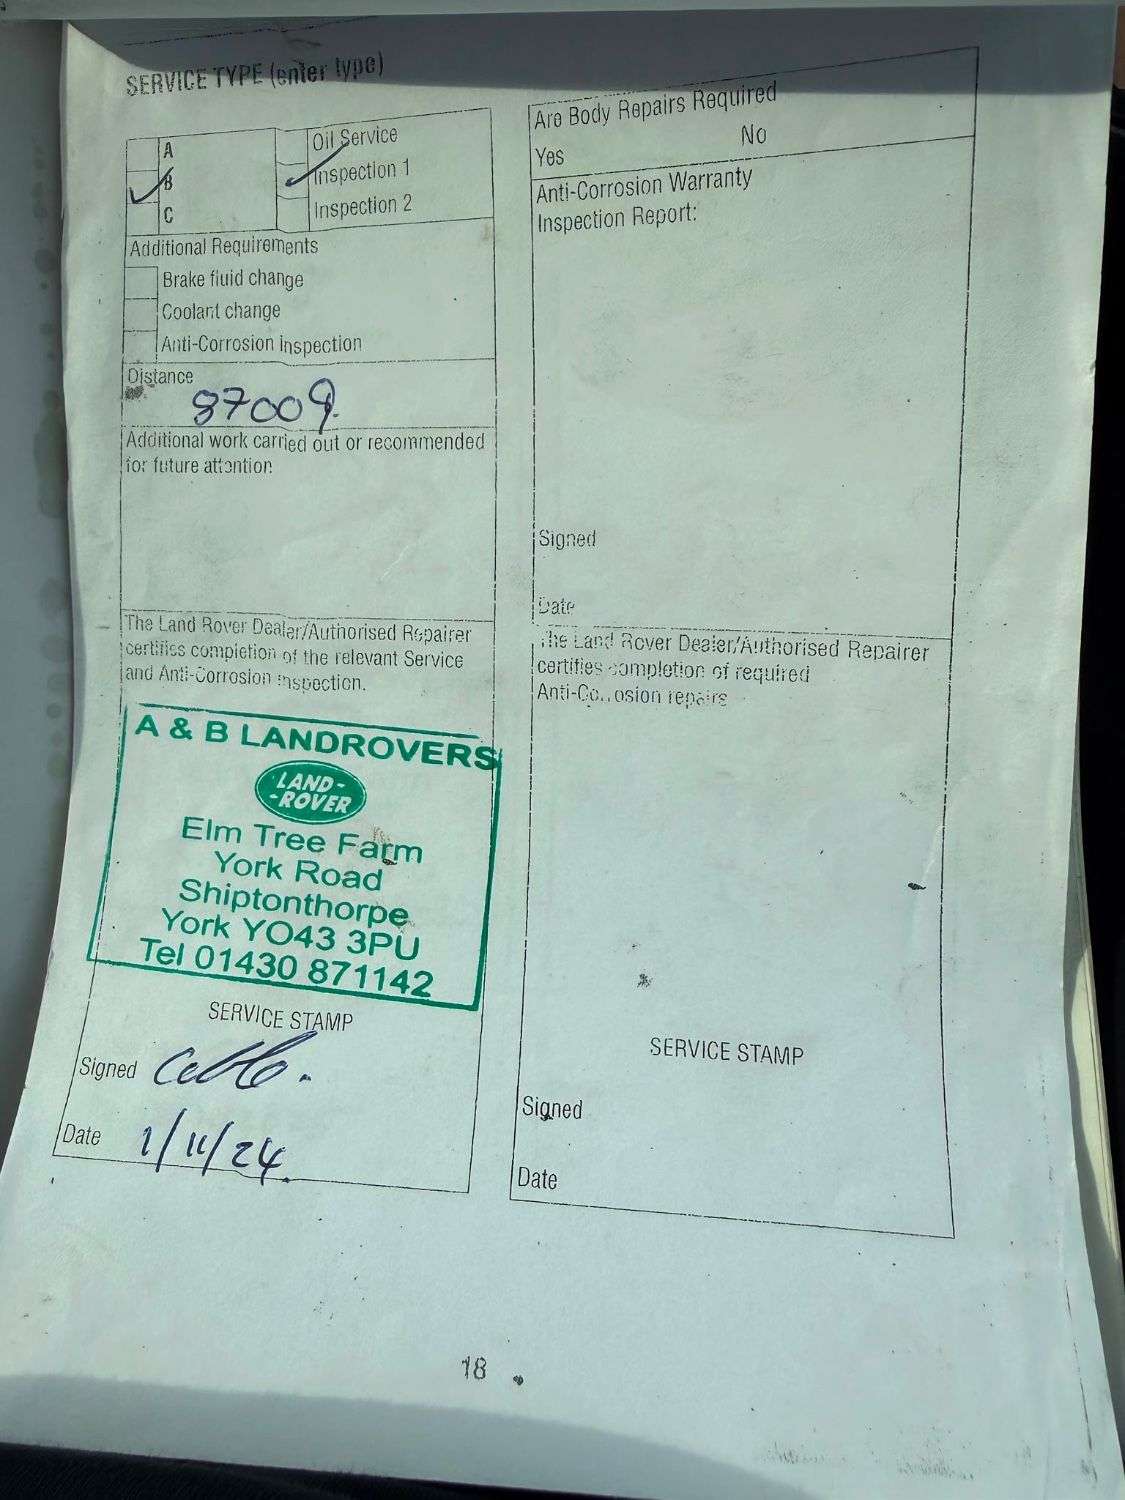 SERVICE TYPE (enter type)
A
B
C
Oil Service
Inspection 1
Inspection 2
Additional Requirements
Brake fluid change
Coolant change
Anti-Corrosion Inspection
Distance
87009
Additional work carried out or recommended
for future attention
The Land Rover Dealer/Authorised Repairer
certifies completion of the relevant Service
and Anti-Corrosion Inspection.
A & B LANDROVERS
LAND-
-ROVER
Elm Tree Farm
York Road
Shiptonthorpe
York YO43 3PU
Tel 01430 871142
SERVICE STAMP
Signed
Date 1/11/24.
Are Body Repairs Required
Yes No
Anti-Corrosion Warranty
Inspection Report:
Signed
Date
The Land Rover Dealer/Authorised Repairer
certifies completion of required
Anti-Corrosion repairs
SERVICE STAMP
Signed
Date
18